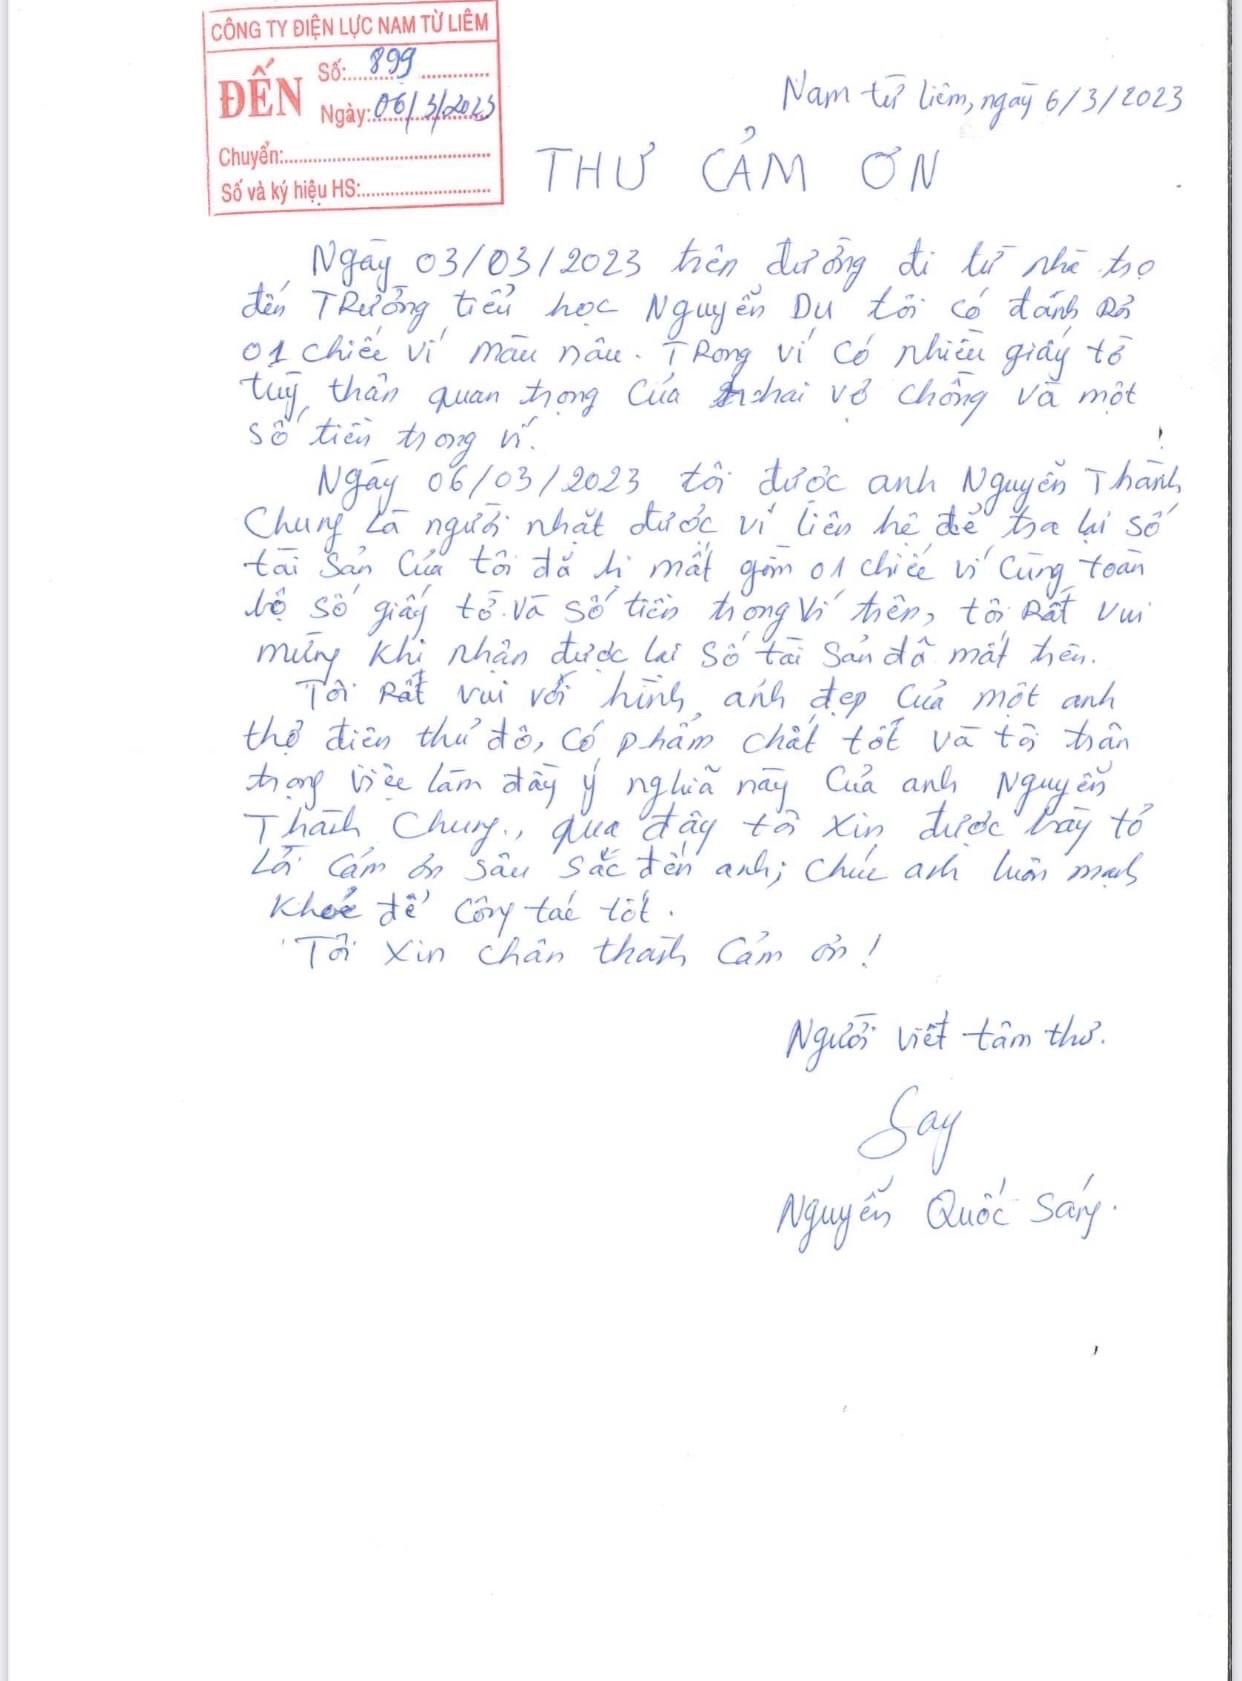 CÔNG TY ĐIỆN LỰC NAM TỪ LIÊM
ĐẾN
Số: 899
Ngày: 06/3/2023
Chuyển:
Số và ký hiệu HS:
Nam từ liêm, ngày 6/3/2023
THƯ CẢM ƠN
Ngày 03/03/2023 trên đường đi từ nhà trọ
đến TRường tiểu học Nguyễn Du tôi có đánh Rơi
01 chiếc ví màu nâu. TRong ví có nhiều giấy tờ
tuỳ thân quan trọng của hai vợ chồng và một
số tiền trong ví.
Ngày 06/03/2023 tôi được anh Nguyễn Thành
Chung Là người nhặt được ví liên hệ để trả lại số
tài sản của tôi đã bị mất gồm 01 chiếc ví cùng toàn
bộ số giấy tờ và số tiền trong ví trên, tôi Rất vui
mừng khi nhận được lại số tài sản đã mất trên.
Tôi Rất vui với hình ảnh đẹp của một anh
thợ điện thủ đô, có phẩm chất tốt và tôi trân
trọng việc làm đầy ý nghĩa này của anh Nguyễn
Thành Chung., qua đây tôi xin được bày tỏ
Lời cảm ơn sâu sắc đến anh; chúc anh luôn mạnh
khoẻ để công tác tốt.
Tôi xin chân thành cảm ơn!
Người viết tâm thư.
Nguyễn Quốc Sáng.